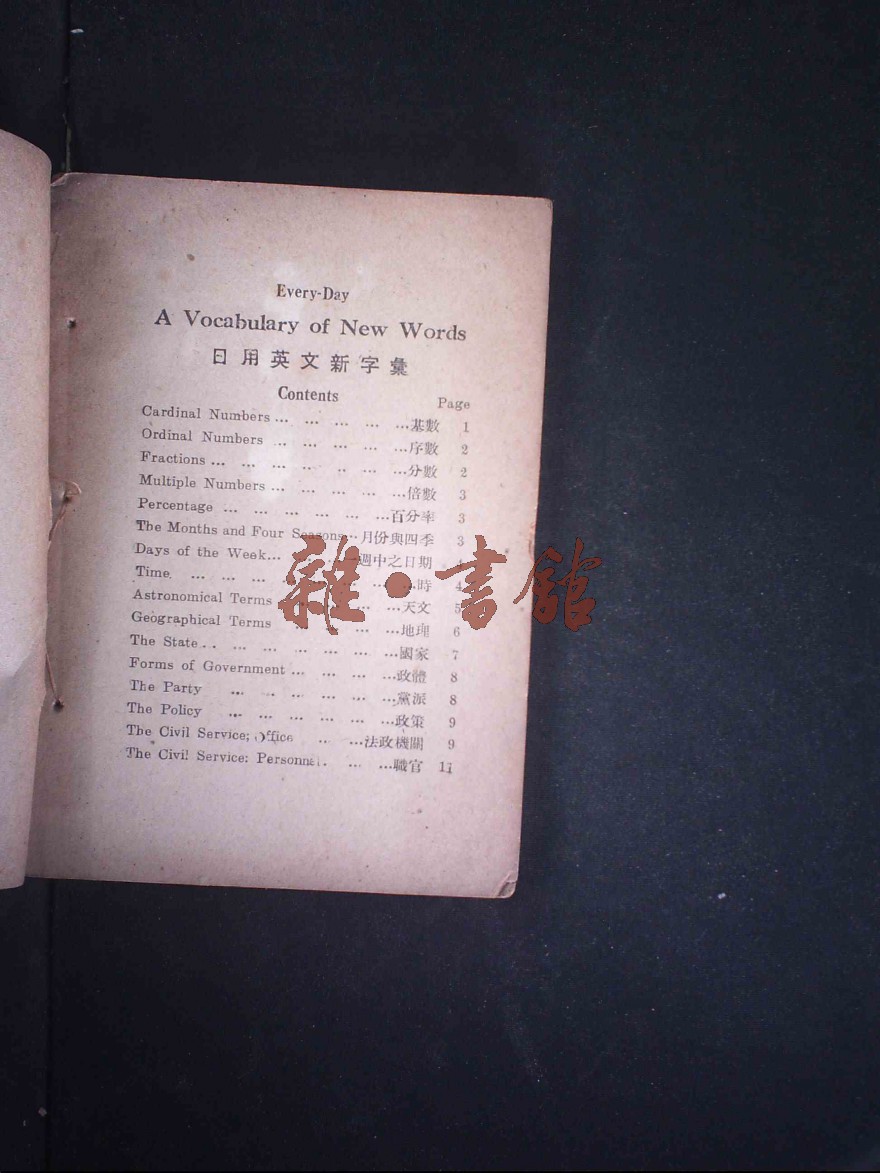 Every-Day
A Vocabulary of New Words
日用英文新字彙
Contents
Page
Cardinal Numbers ... ... ... ... ... ...基數 1
Ordinal Numbers ... ... ... ... ...序數 2
Fractions ... ... ... ... ... ... ...分數 2
Multiple Numbers ... ... ... ... ...倍數 3
Percentage ... ... ... ... ... ...百分率 3
The Months and Four Seasons...月份與四季 3
Days of the Week... ... ...週中之日期
Time ... ... ... ... ... ... ...時 4
Astronomical Terms ... ... ... ...天文 5
Geographical Terms ... ... ... ...地理 6
The State... ... ... ... ... ... ...國家 7
Forms of Government ... ... ... ...政體 8
The Party ... ... ... ... ... ...黨派 8
The Policy ... ... ... ... ... ...政策 9
The Civil Service; Office ... ...法政機關 9
The Civil Service: Personnel. ... ...職官 11
雜·書館